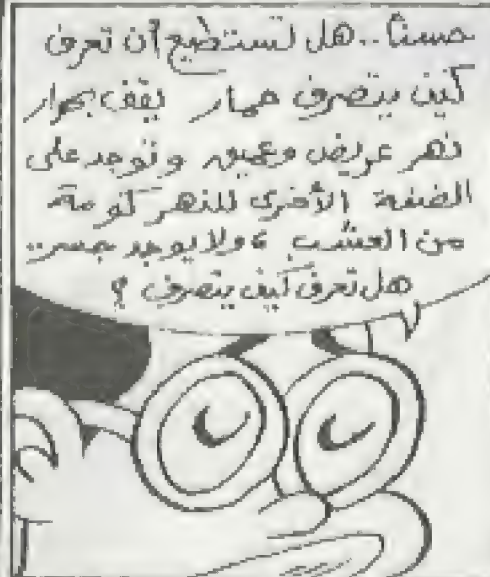 حسنًا.. هل تستطيع أن تعرف
كيف يتصرف حمار يقف بجوار
نهر عريض وعميق وتوجد على
الضفة الأخرى للنهر كومة
من العشب، ولا يوجد جسر..
هل تعرف كيف يتصرف؟